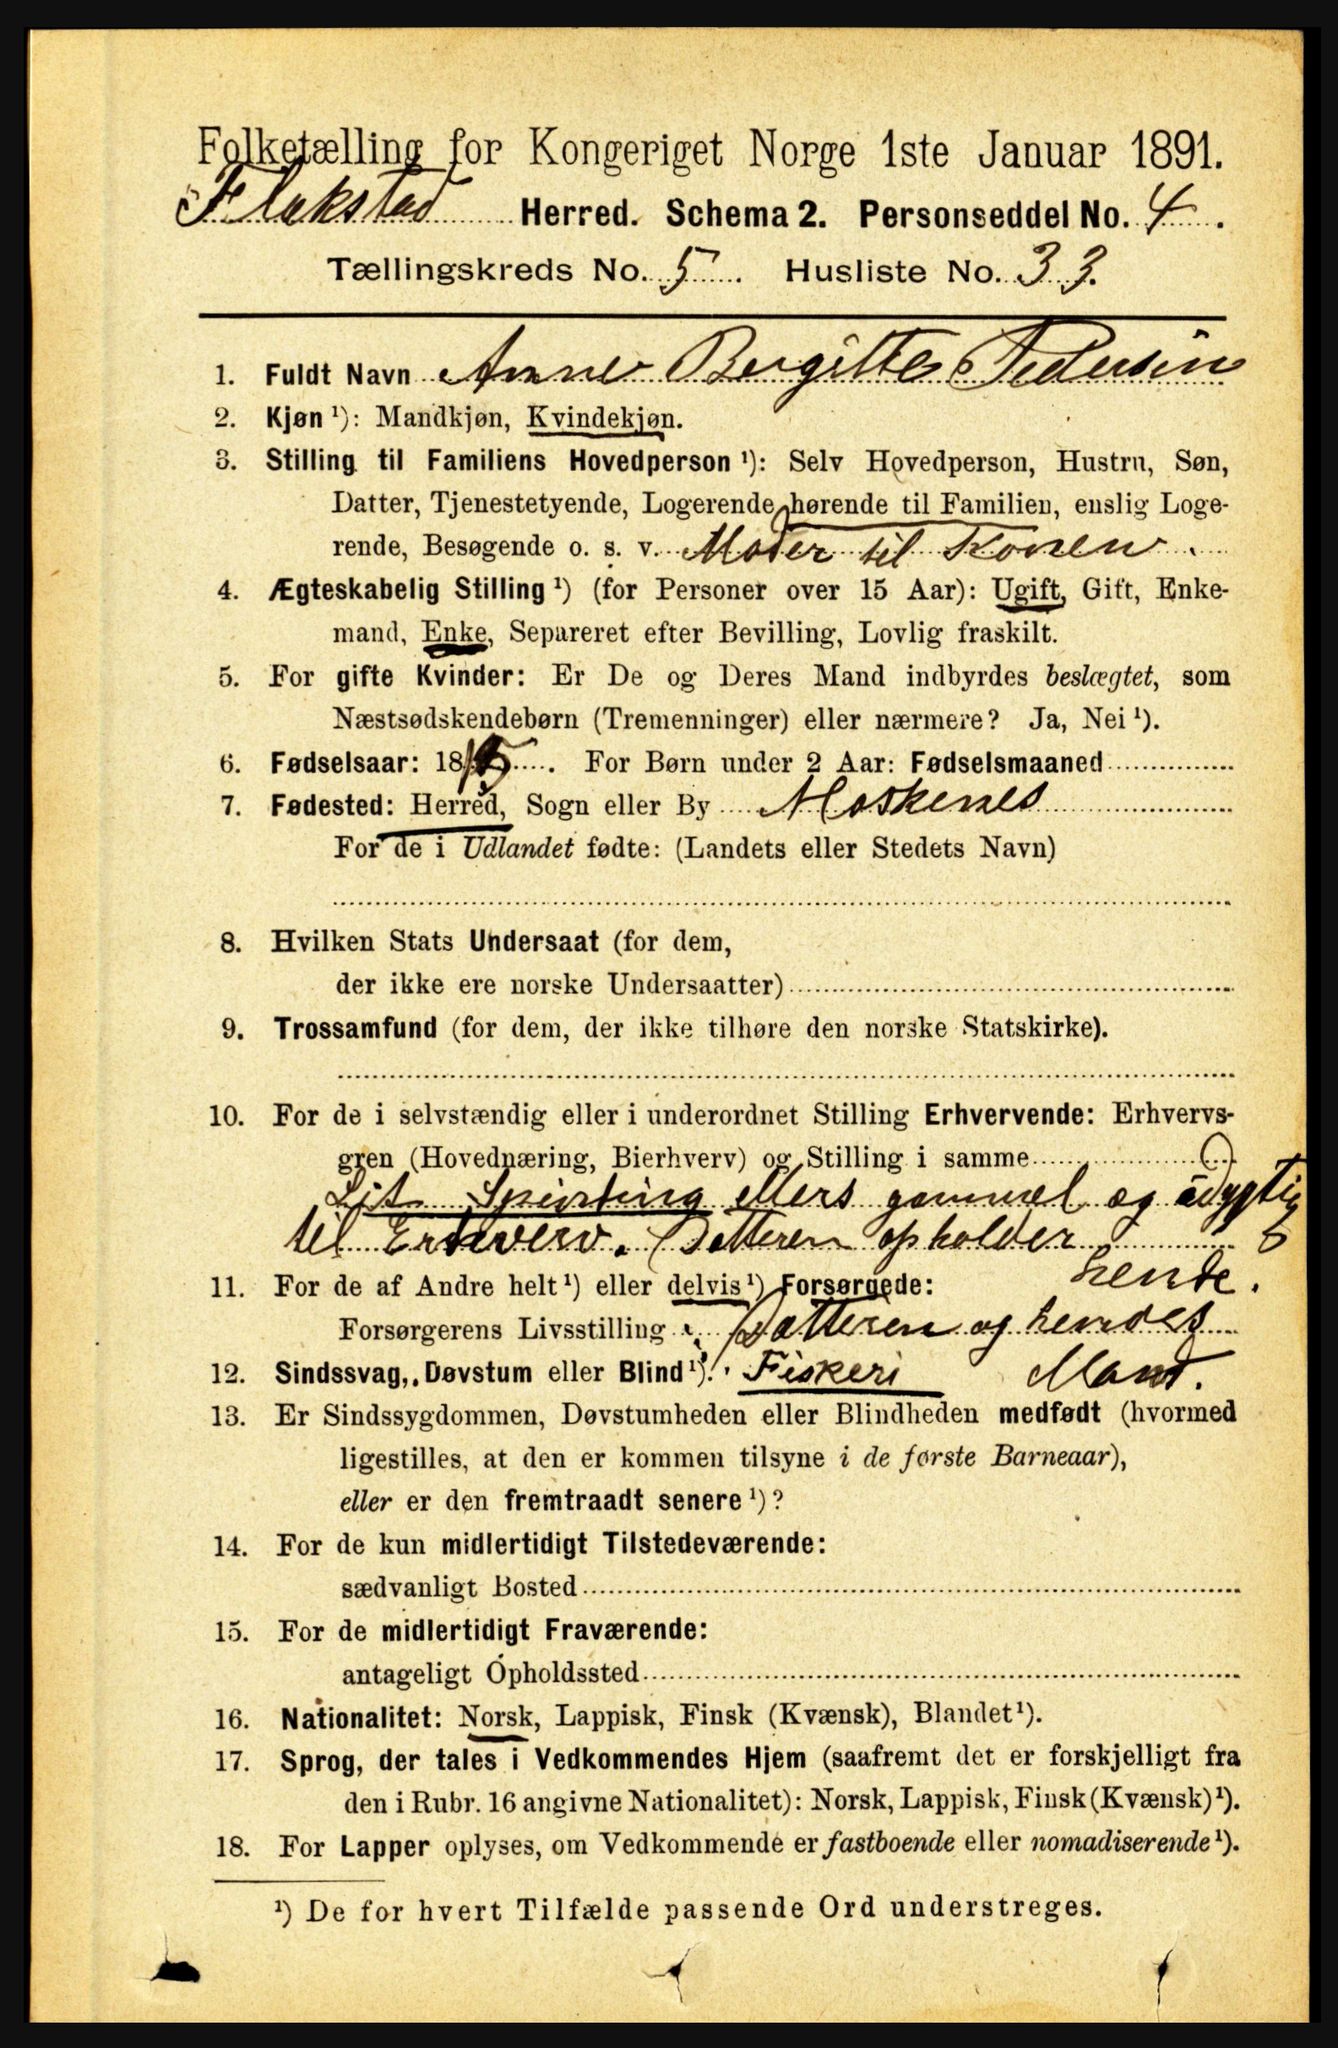 Folketælling for Kongeriget Norge 1ste Januar 1891.
Flakstad Herred. Schema 2. Personseddel No. 4.
Tællingskreds No. 5. Husliste No. 33.
1. Fuldt Navn Anne Bergitte Pedersen
2. Kjøn ¹): Mandkjøn, Kvindekjøn.
3. Stilling til Familiens Hovedperson ¹): Selv Hovedperson, Hustru, Søn,
Datter, Tjenestetyende, Logerende hørende til Familien, enslig Loge-
rende, Besøgende o. s. v. Moder til Konen.
4. Ægteskabelig Stilling ¹) (for Personer over 15 Aar): Ugift, Gift, Enke-
mand, Enke, Separeret efter Bevilling, Lovlig fraskilt.
5. For gifte Kvinder: Er De og Deres Mand indbyrdes beslægtet, som
Næstsødskendebørn (Tremenninger) eller nærmere? Ja, Nei ¹).
6. Fødselsaar: 1815. For Børn under 2 Aar: Fødselsmaaned
7. Fødested: Herred, Sogn eller By Moskenes
For de i Udlandet fødte: (Landets eller Stedets Navn)
8. Hvilken Stats Undersaat (for dem,
der ikke ere norske Undersaatter)
9. Trossamfund (for dem, der ikke tilhøre den norske Statskirke).
10. For de i selvstændig eller i underordnet Stilling Erhvervende: Erhvervs-
gren (Hovednæring, Bierhverv) og Stilling i samme
Lit Spinding Ellers gammel og udygtig
til Erhverv. Datteren opholder
hende.
11. For de af Andre helt ¹) eller delvis ¹) Forsørgede:
Forsørgerens Livsstilling Datteren og hendes
Mand.
12. Sindssvag, Døvstum eller Blind ¹). Fiskeri
13. Er Sindssygdommen, Døvstumheden eller Blindheden medfødt (hvormed
ligestilles, at den er kommen tilsyne i de første Barneaar),
eller er den fremtraadt senere ¹)?
14. For de kun midlertidigt Tilstedeværende:
sædvanligt Bosted
15. For de midlertidigt Fraværende:
antageligt Opholdssted
16. Nationalitet: Norsk, Lappisk, Finsk (Kvænsk), Blandet ¹).
17. Sprog, der tales i Vedkommendes Hjem (saafremt det er forskjelligt fra
den i Rubr. 16 angivne Nationalitet): Norsk, Lappisk, Finsk (Kvænsk) ¹).
18. For Lapper oplyses, om Vedkommende er fastboende eller nomadiserende ¹).
¹) De for hvert Tilfælde passende Ord understreges.